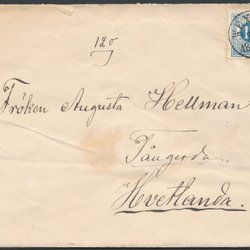 120
Fröken Augusta Hellman
Tångerda.
Hvetlanda.